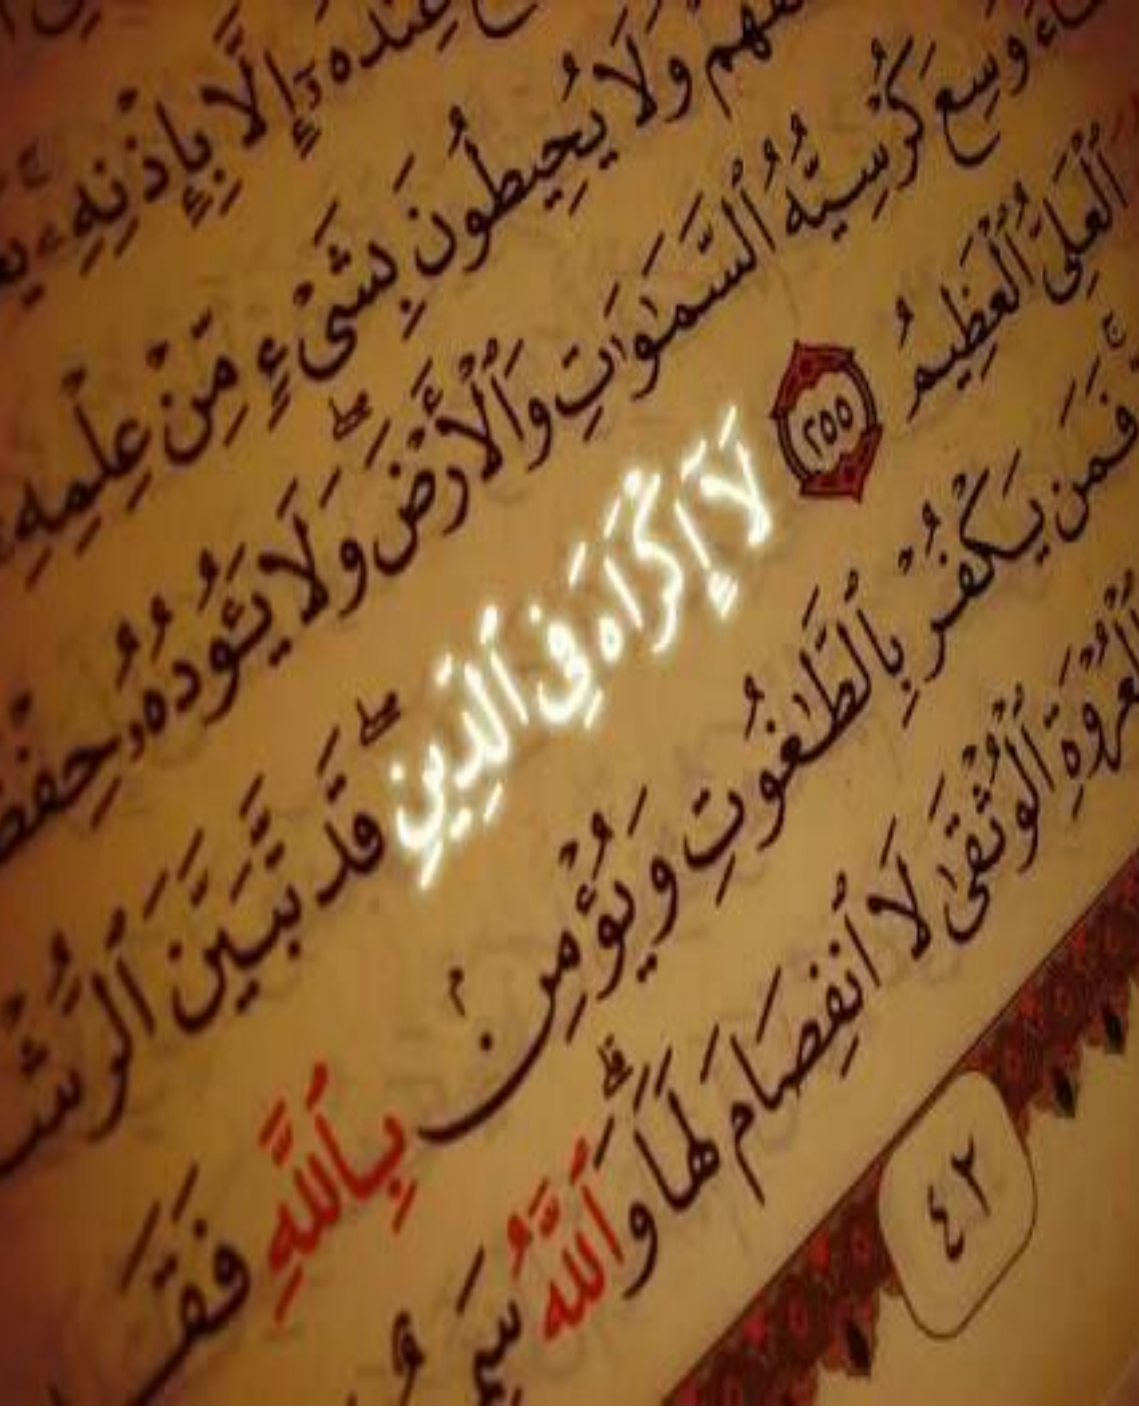 عِندَهُۥٓ إِلَّا بِإِذْنِهِۦۚ
وَلَا يُحِيطُونَ بِشَىْءٍ مِّنْ عِلْمِهِۦٓ
وَسِعَ كُرْسِيُّهُ ٱلسَّمَٰوَٰتِ وَٱلْأَرْضَۖ وَلَا يَـُٔودُهُۥ
ٱلْعَلِىُّ ٱلْعَظِيمُ ٢٥٥ لَآ إِكْرَاهَ فِى ٱلدِّينِۖ قَد تَّبَيَّنَ
فَمَن يَكْفُرْ بِٱلطَّٰغُوتِ وَيُؤْمِنۢ بِٱللَّهِ
ٱلْوُثْقَىٰ لَا ٱنفِصَامَ لَهَاۗ وَٱللَّهُ
٤٢